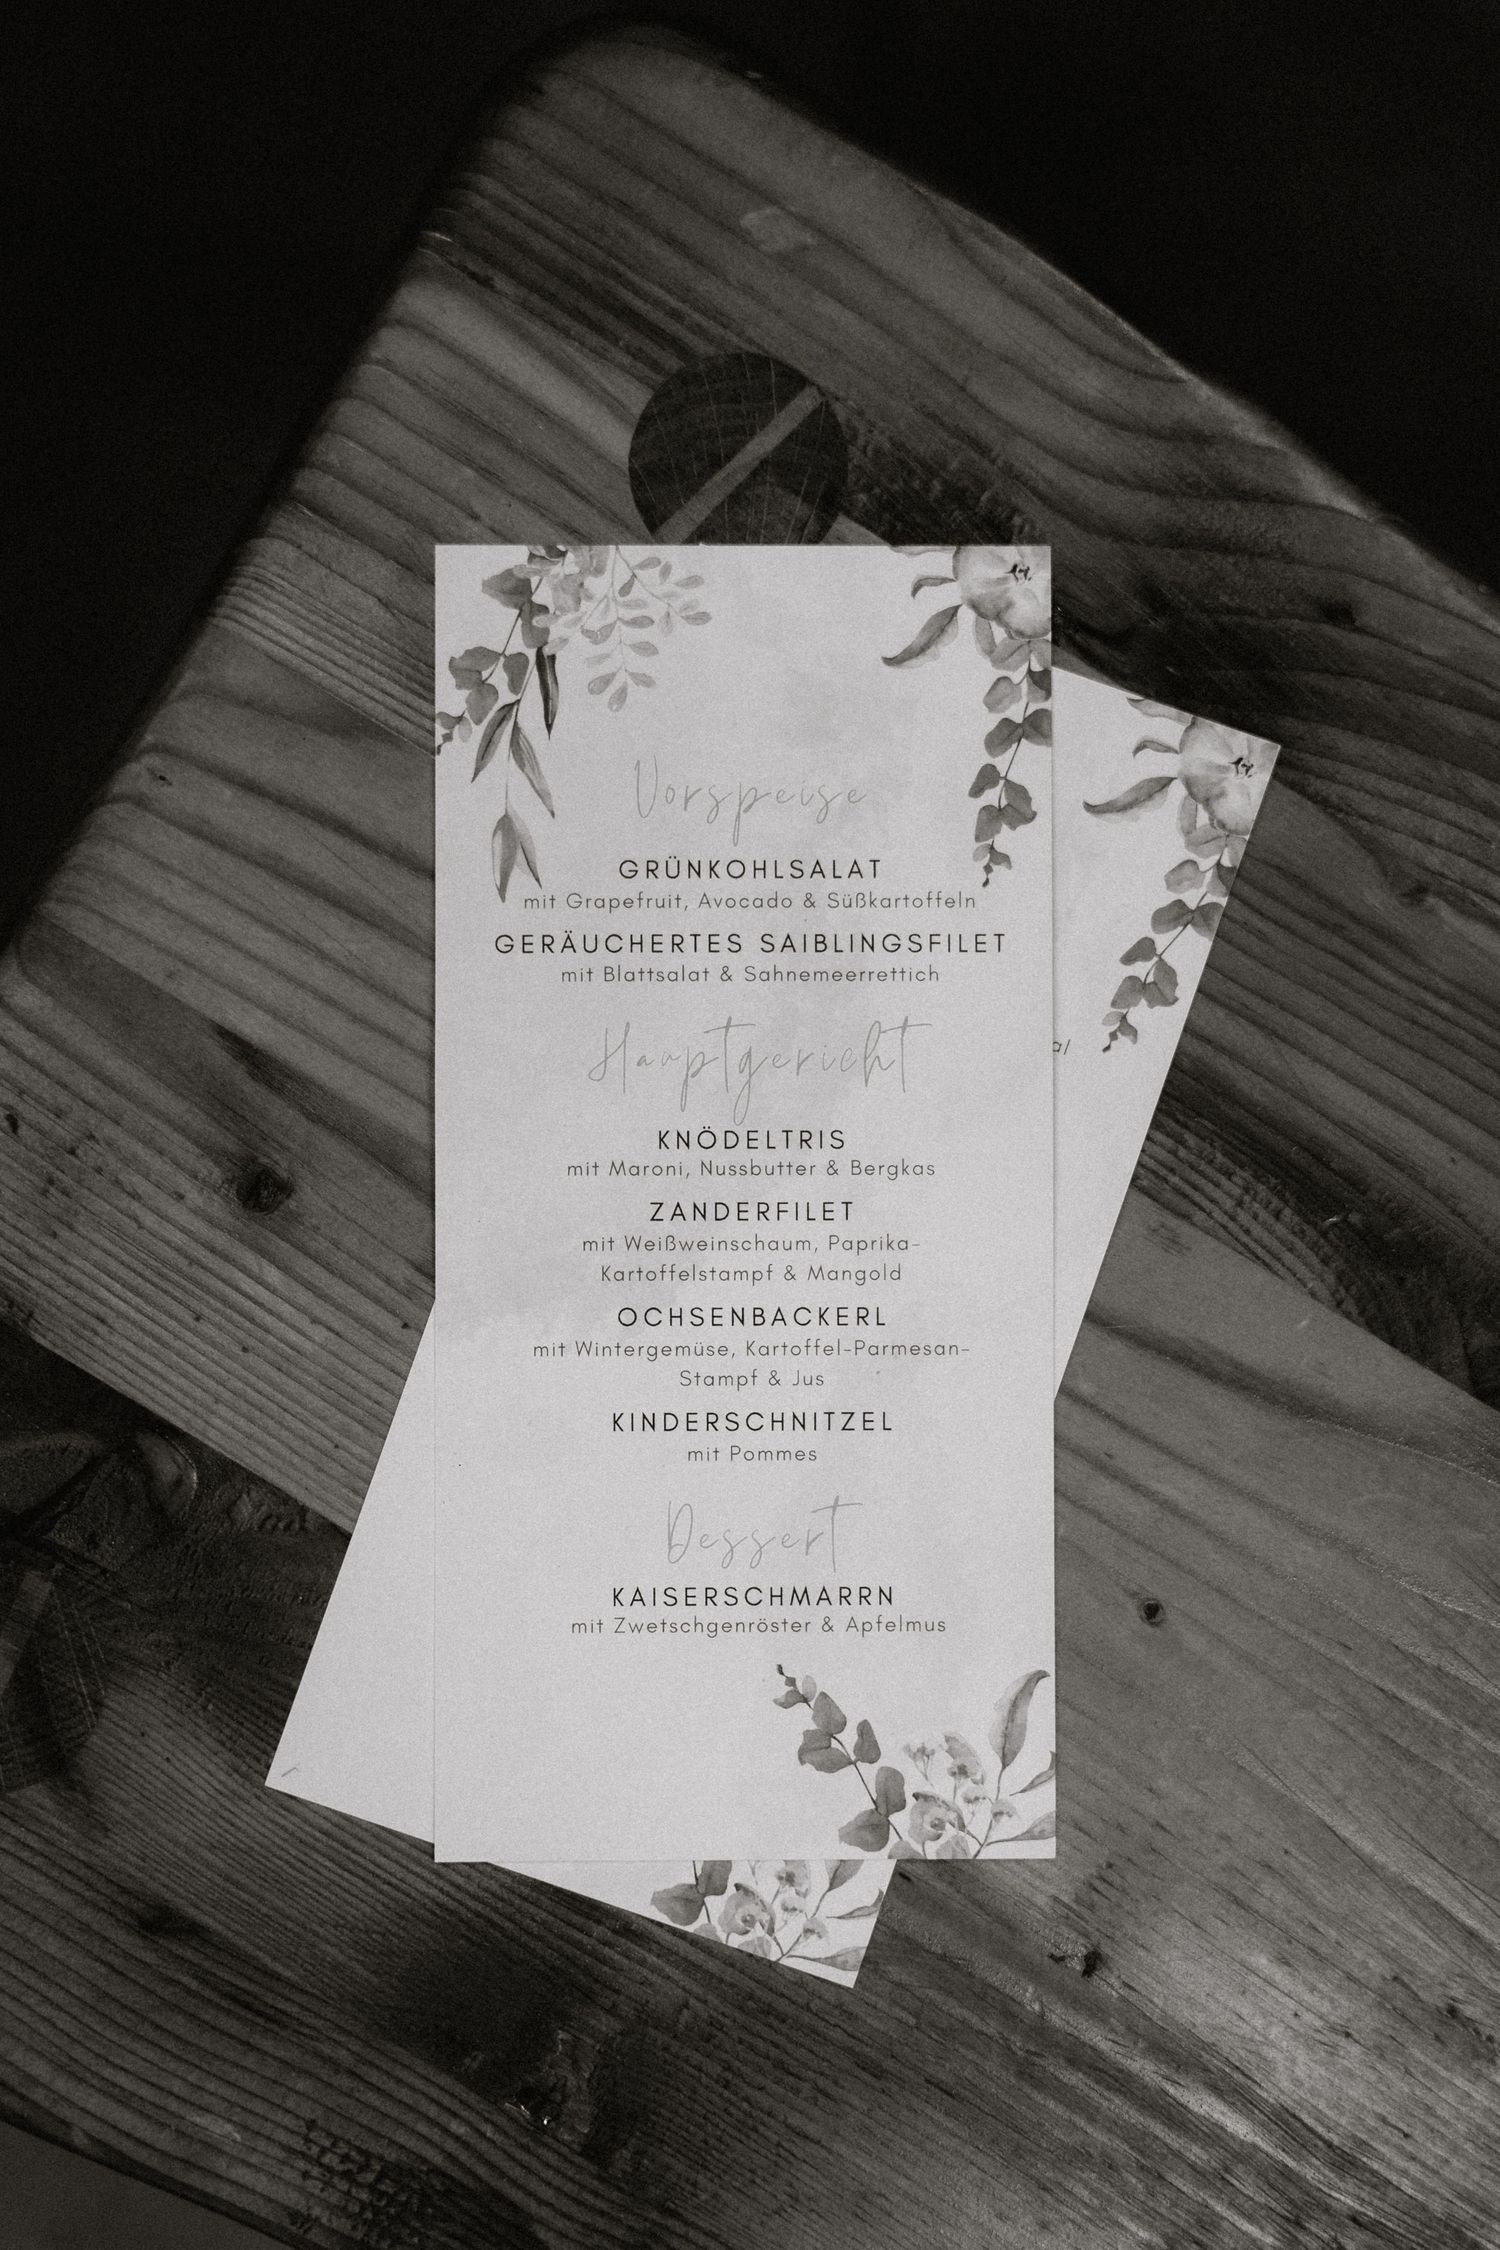 Vorspeise
GRÜNKOHLSALAT
mit Grapefruit, Avocado & Süßkartoffeln
GERÄUCHERTES SAIBLINGSFILET
mit Blattsalat & Sahnemeerrettich
Hauptgericht
KNÖDELTRIS
mit Maroni, Nussbutter & Bergkas
ZANDERFILET
mit Weißweinschaum, Paprika-
Kartoffelstampf & Mangold
OCHSENBACKERL
mit Wintergemüse, Kartoffel-Parmesan-
Stampf & Jus
KINDERSCHNITZEL
mit Pommes
Dessert
KAISERSCHMARRN
mit Zwetschgenröster & Apfelmus